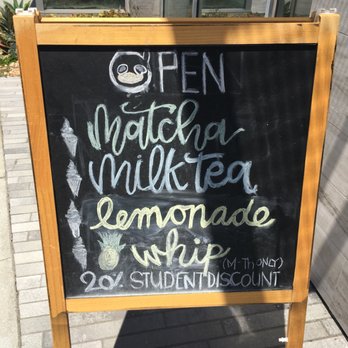 OPEN
matcha
milk tea
lemonade
whip
(M-Th ONLY)
20% STUDENT DISCOUNT